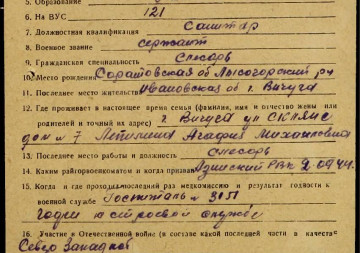 5. Образование
6. На ВУС 121
7. Должностная квалификация Санитар
8. Военное звание сержант
9. Гражданская специальность Слесарь
10. Место рождения Саратовская об Лысогорский р-н
11. Последнее место жительства Ивановская об г. Вичуга
12. Где проживает в настоящее время семья (фамилия, имя и отчество жены или
родителей и точный их адрес) г. Вичуга ул
дом № 7 Агафия Михайловна
13. Последнее место работы и должность слесарь
14. Каким райгорвоенкоматом и когда призван РВК 2.09.41.
15. Когда и где проходил последний раз медкомиссию и результат годности к
военной службе Госпиталь №
годен к строевой службе
16. Участие в Отечественной войне (в составе какой последней части в качестве
Северо Западной